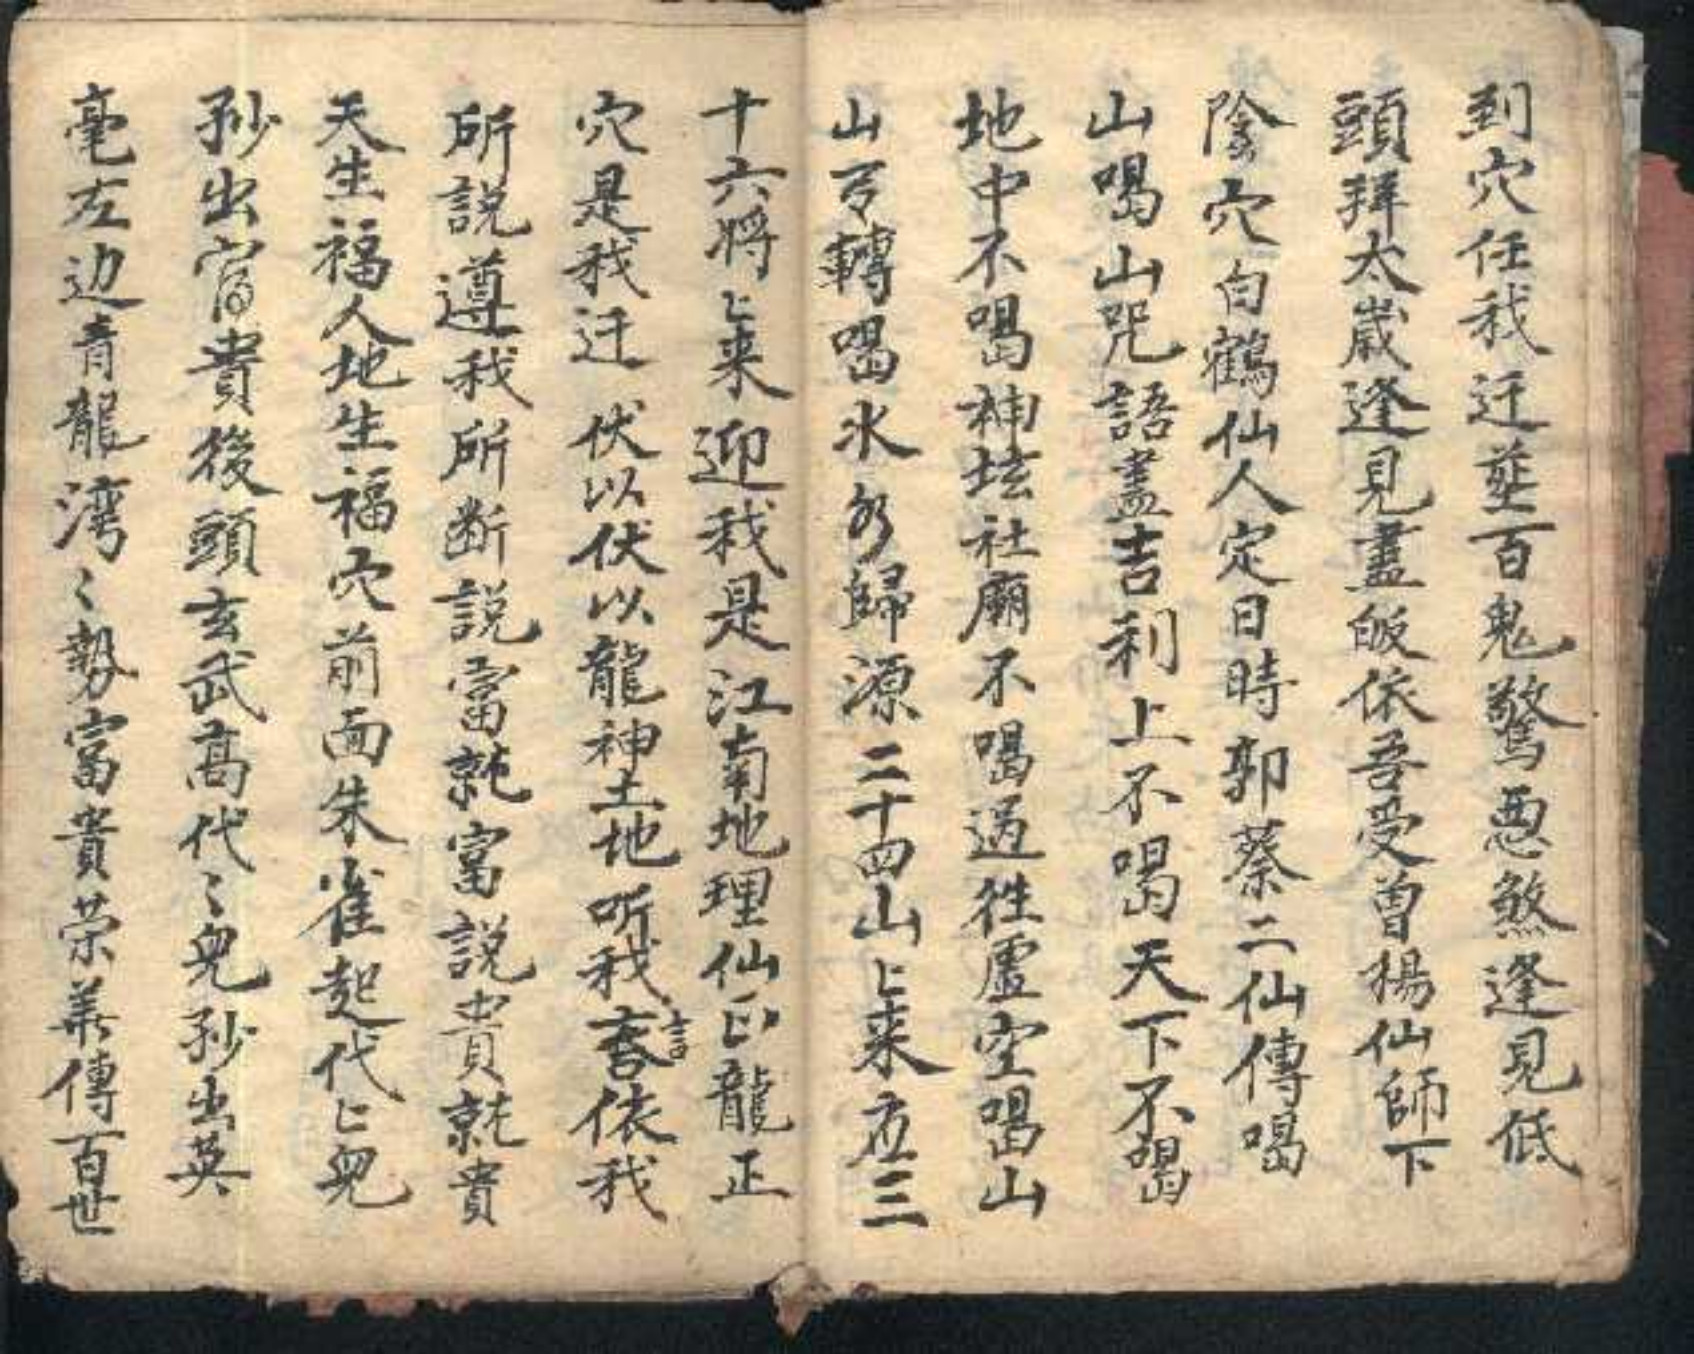 到穴任我迁塟百鬼驚惡煞逢見低
頭拜太歲逢見盡皈依吾受曽楊仙師下
陰穴白鶴仙人定日時郭蔡二仙傳喝
山喝山咒語盡吉利上不喝天下不喝
地中不喝神坛社廟不喝過徃虛空喝山
山轉喝水水歸源二十四山山来应三
十六将上来迎我是江南地理仙卩龍正
穴是我迁伏以伏以龍神土地听我言依我
所説遵我所断説富就富説貴就貴
天生福人地生福穴前面朱雀起代上皃
孙出官貴後頭玄武高代〻皃孙出英
毫左边青龍湾〻勢富貴荣華傳百世